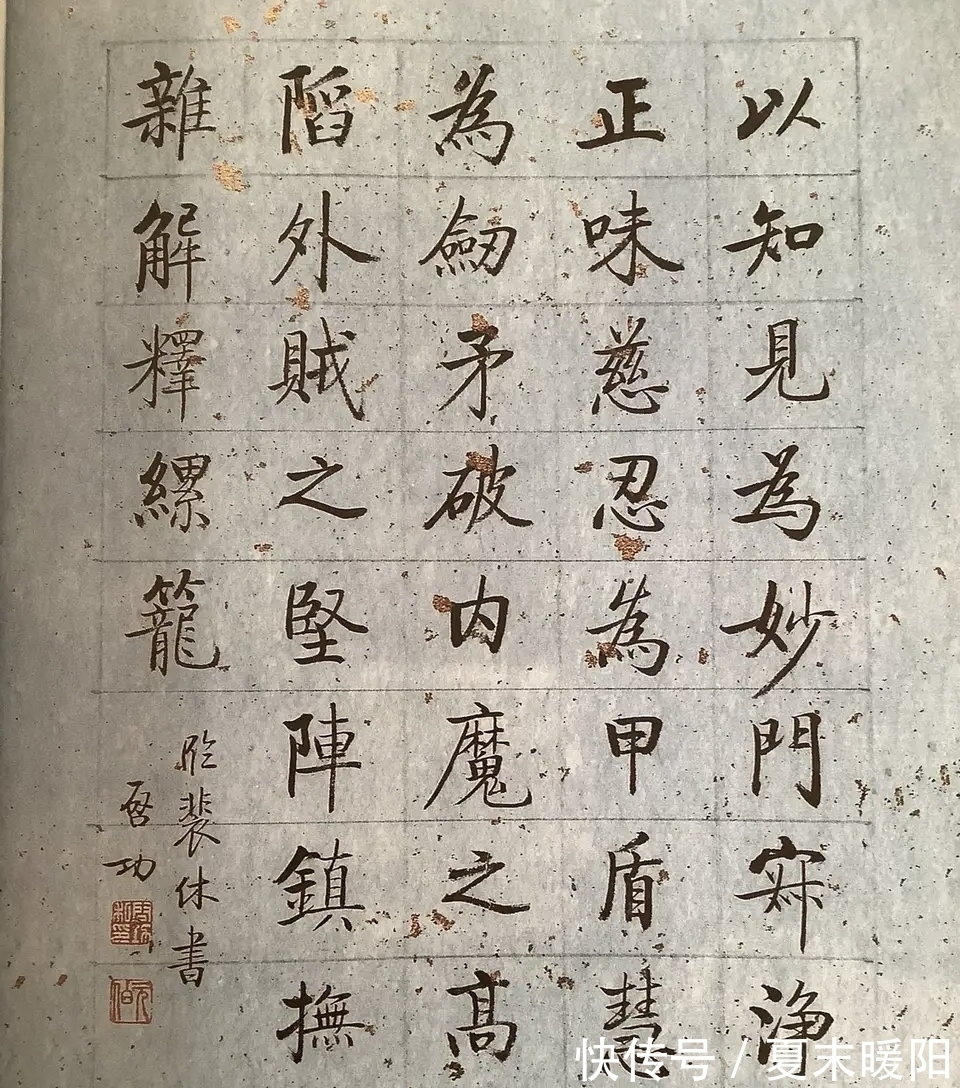 以知見為妙門寂淨
正味慈忍為甲盾慧
為劒矛破內魔之高
陷外賊之堅陣鎮撫
雜解釋縲籠
臨裴休書
啓功
快传号 / 夏末暖阳